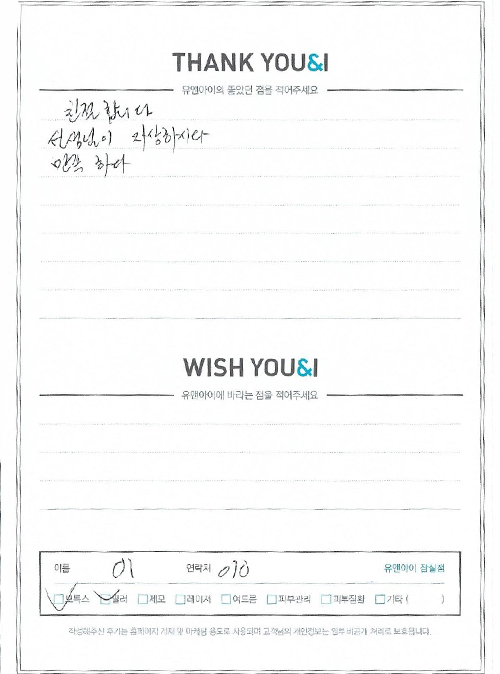 THANK YOU&I
유앤아이의 좋았던 점을 적어주세요
친절합니다
선생님이 자상하시다
만족 하다
WISH YOU&I
유앤아이에 바라는 점을 적어주세요
이름 이 연락처 010 유앤아이 잠실점
보톡스 필러 제모 레이저 여드름 피부관리 피부질환 기타 ( )
작성해주신 후기는 홈페이지 게재 및 마케팅 용도로 사용되며 고객님의 개인정보는 일부 비공개 처리로 보호됩니다.